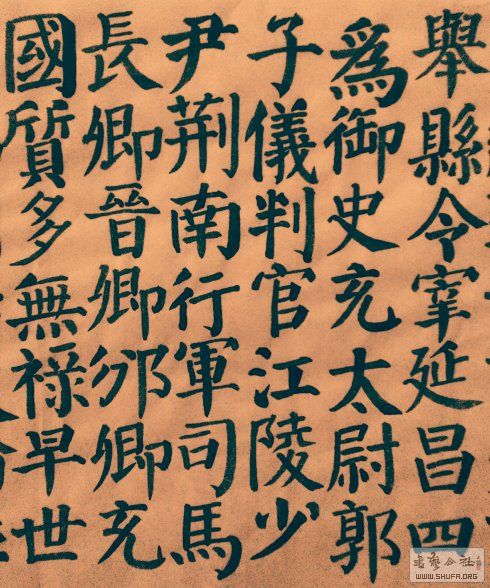 舉縣令宰延昌四
為御史充太尉郭
子儀判官江陵少
尹荆南行軍司馬
長卿晉卿邠卿充
國質多無祿早世
WWW.SHUFA.ORG